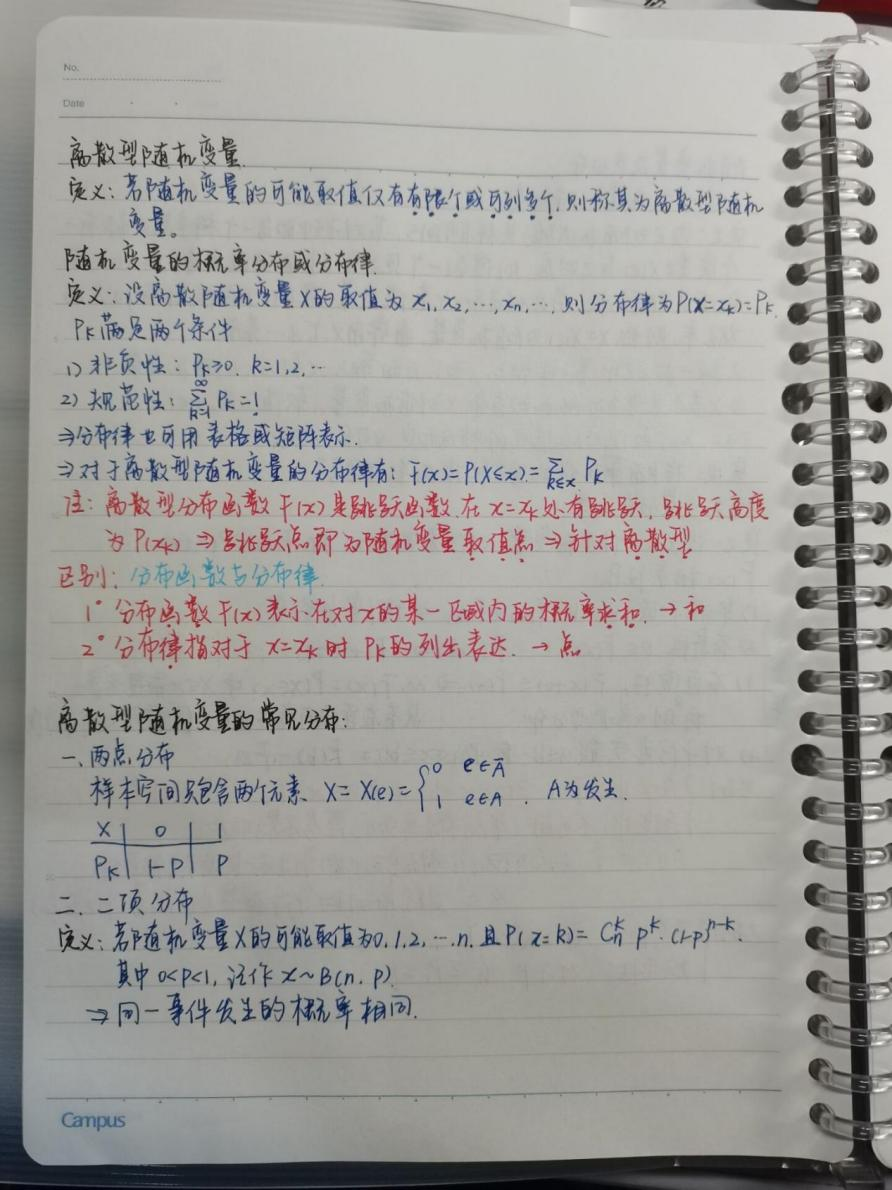 No.
Date
离散型随机变量.
定义:若随机变量的可能取值仅有有限个或可列多个,则称其为离散型随机
变量。
随机变量的概率分布或分布律.
定义:设离散随机变量X的取值为 x₁, x₂, …, xₙ, …. 则分布律为P(X=xₖ)=Pₖ.
Pₖ满足两个条件
1) 非负性: Pₖ≥0. k=1,2,…
2) 规范性: ∑_{k=1}^{∞} Pₖ=1.
⇒分布律也可用表格或矩阵表示.
⇒对于离散型随机变量的分布律有: F(x)=P(X≤x)=∑_{k≤x} Pₖ
注: 离散型分布函数F(x)是跳跃函数.在x=xₖ处有跳跃, 跳跃高度
为P(xₖ) ⇒ 跳跃点即为随机变量取值点 ⇒ 针对离散型
区别: 分布函数与分布律.
1° 分布函数F(x)表示在对x的某一区域内的概率求和. → 和
2° 分布律指对于 x=xₖ时 Pₖ的列出表达. → 点
离散型随机变量的常见分布:
一、两点分布
样本空间只包含两个元素. X=X(e)={0 e∈Ā
1 e∈A . A为发生.
X | 0 | 1
Pₖ | 1-P | P
二、二项分布
定义:若随机变量X的可能取值为0,1,2,…n. 且P(x=k)= Cₙᵏ Pᵏ·(1-P)ⁿ⁻ᵏ.
其中 0<P<1, 记作 x~B(n, P)
⇒ 同一事件发生的概率相同.
Campus